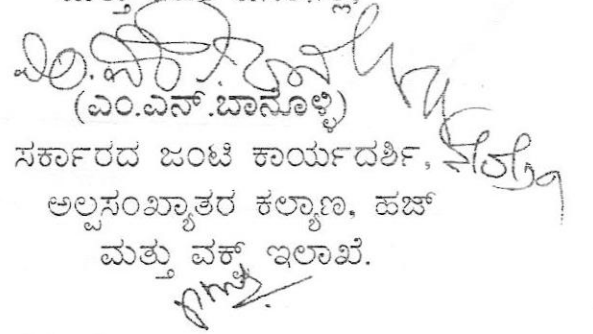 (ಎಂ.ಎನ್.ಬಾನೊಳ್ಳಿ)
ಸರ್ಕಾರದ ಜಂಟಿ ಕಾರ್ಯದರ್ಶಿ,
ಅಲ್ಪಸಂಖ್ಯಾತರ ಕಲ್ಯಾಣ, ಹಜ್
ಮತ್ತು ವಕ್ಫ್ ಇಲಾಖೆ.